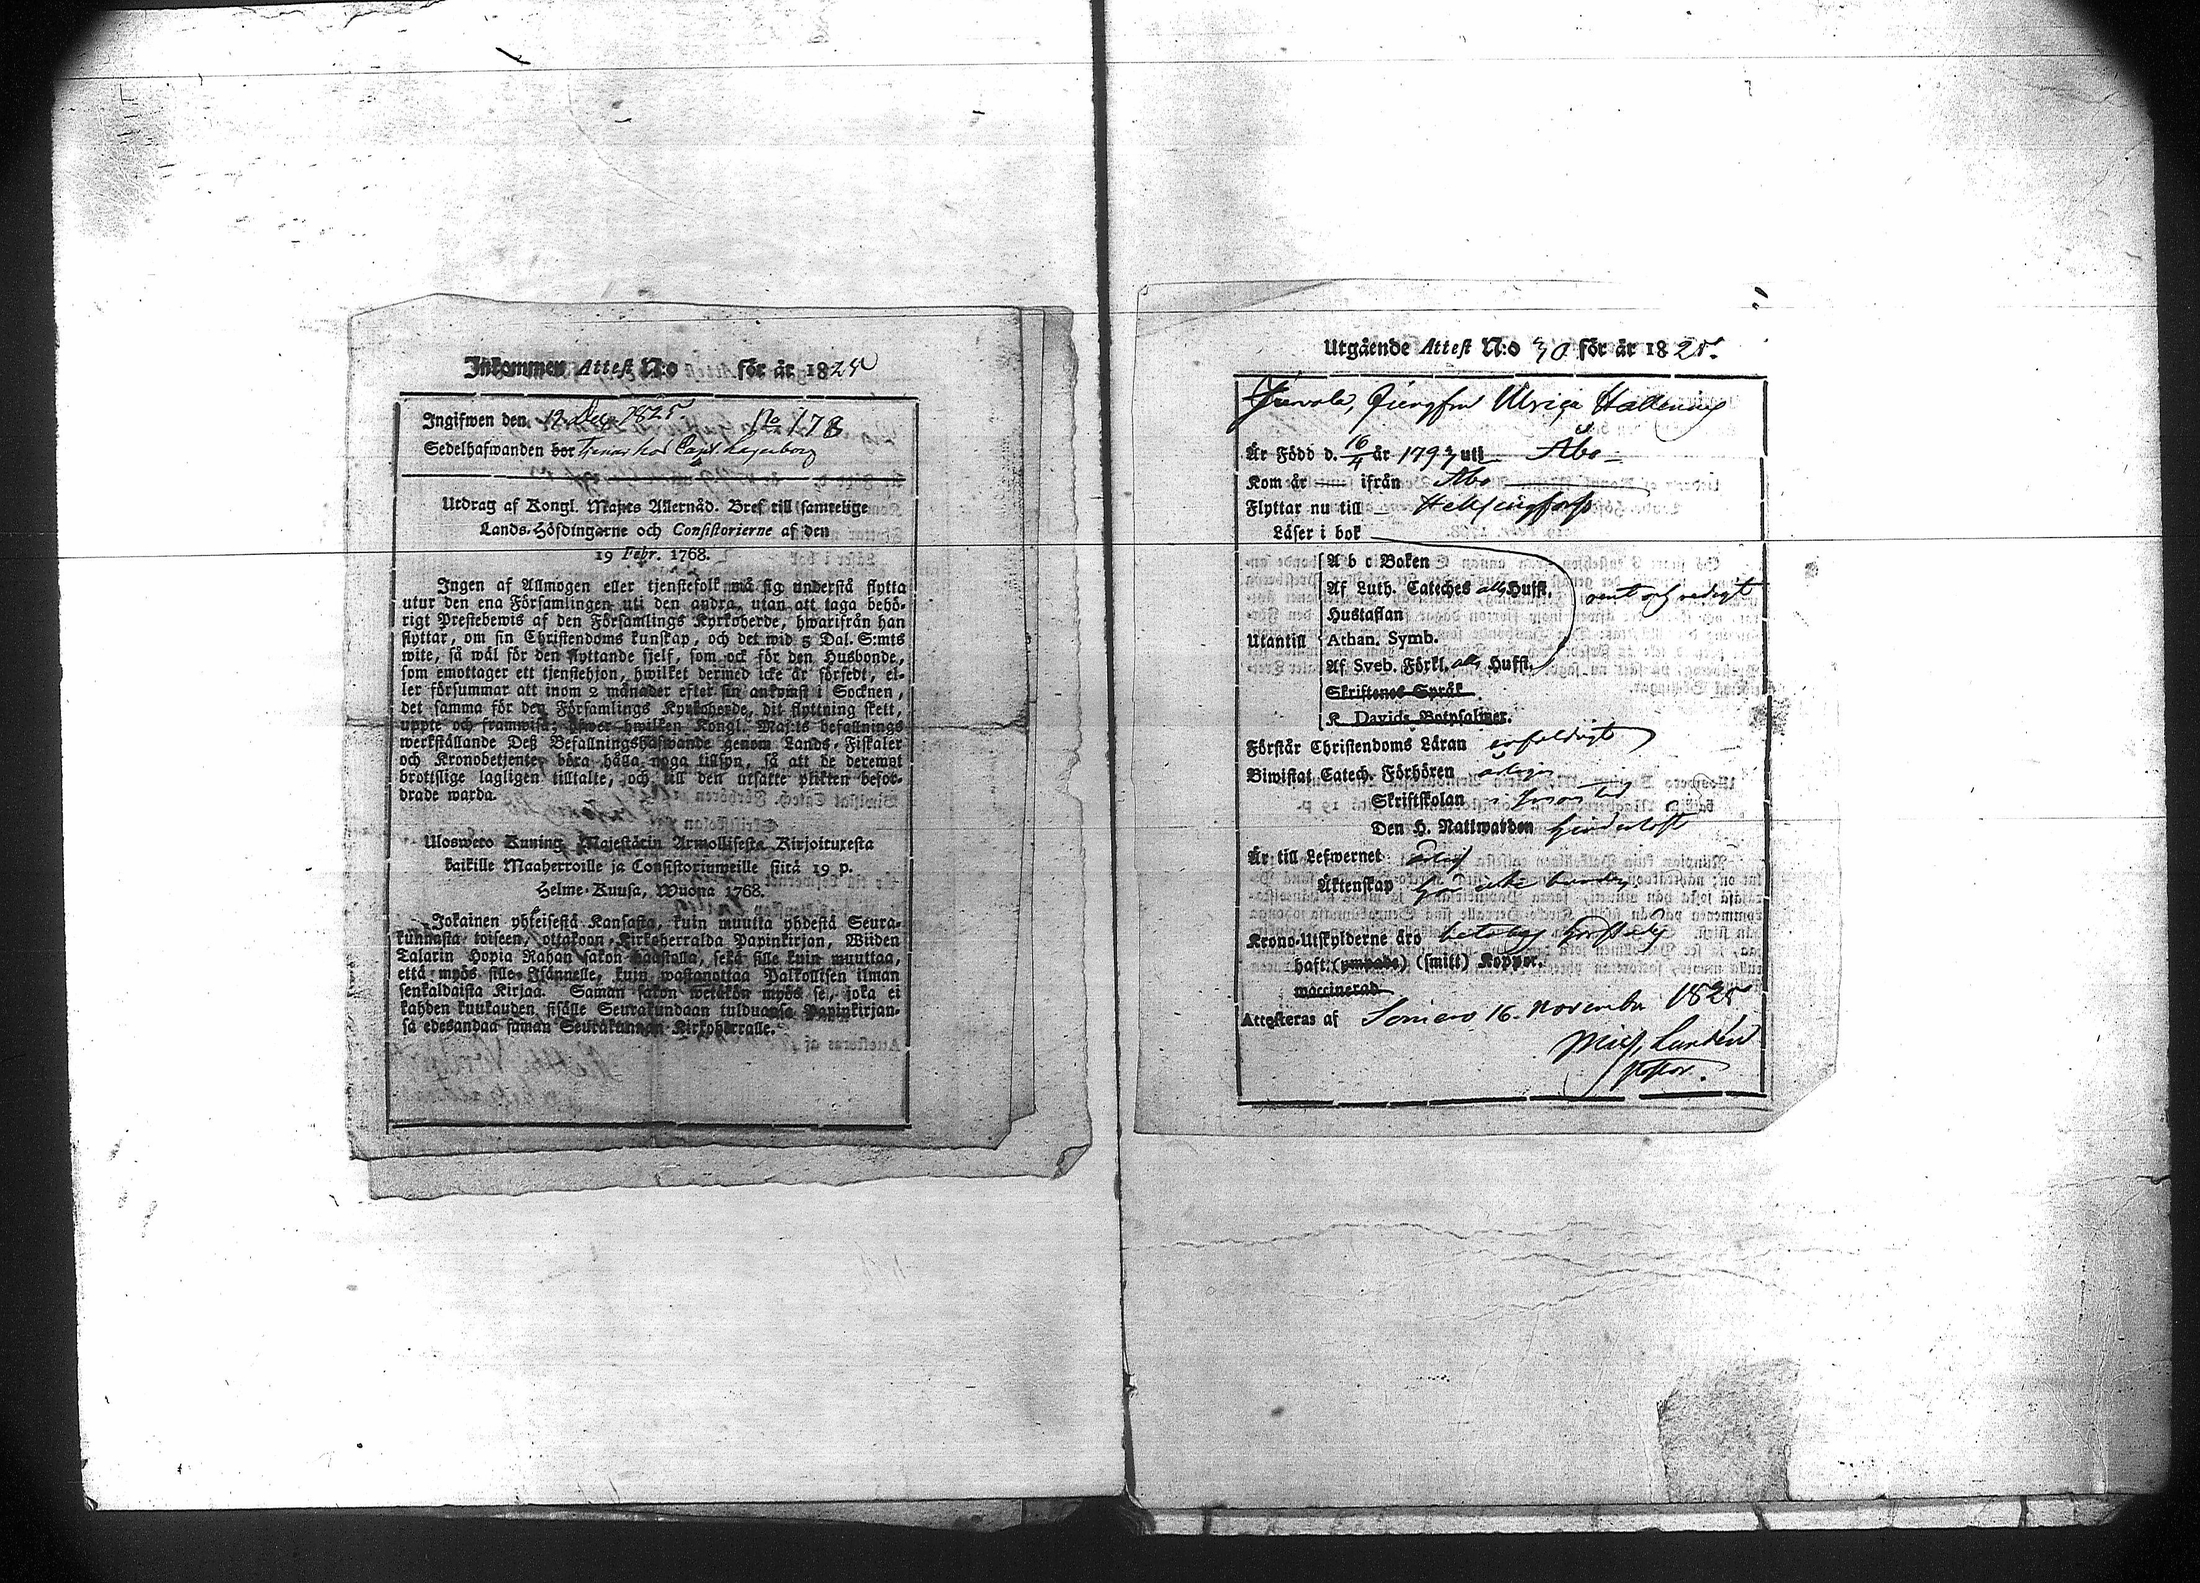 Inkommen Attest N:o för år 1825
Ingifwen den 12 Dec. 1825 No 178
Sedelhafwanden bor tjenar hos Capt. Lagerborg
Utdrag af Kongl. Maj:ts Allernåd. Bref till samtelige
Lands-Höfdingarne och Consistorierne af den
19 Febr. 1768.
Ingen af Allmogen eller tjenstefolk må sig understå flytta
utur den ena Församlingen uti den andra, utan att taga behö-
rigt Prestebewis af den Församlings Kyrkoherde, hwarifrån han
flyttar, om sin Christendoms kunskap, och det wid 5 Dal. S:mts
wite, så wäl för den flyttande sjelf, som ock för den Husbonde,
som emottager ett tjenstehjon, hwilket dermed icke är försedt, el-
ler försummar att inom 2 månader efter sin ankomst i Socknen,
det samma för den Församlings Kyrkoherde, dit flyttning skett,
uppte och framwisa; öfwer hwilken Kongl. Maj:ts befallnings
werkställande Deß Befallningshafwande genom Lands-Fiskaler
och Kronobetjente, böra hålla noga tillsyn, så att de deremot
brottslige lagligen tilltalte, och till den utsatte plikten befor-
drade warda.
Ulosweto Kuning. Majestätin Armollisesta Kirjoituxesta
kaikille Maaherroille ja Consistoriumeille siitä 19 p.
Helme-Kuusa, Wuona 1768.
Jokainen yhteisestä Kansasta, kuin muutta yhdestä Seura-
kunnasta toiseen, ottakoon Kirkoherralda Papinkirjan, Wiiden
Talarin Hopia Rahan sakon haastolla, sekä sille kuin muuttaa,
että myös sille Isännelle, kuin wastanottaa Palkollisen ilman
senkaldaista Kirjaa. Saman sakon wetäkön myös se, joka ei
kahden kuukauden sisälle Seurakundaan tulduansa Papinkirjan-
sa edesandaa saman Seurakunnan Kirkoherralle.
Utgående Attest N:o 30 för år 1825.
Jungfru Ulrica
Är Född d. 16/4 år 1793 uti Åbo
Kom år ifrån Åbo
Flyttar nu till Helsingfors
Läser i bok
A b c Boken
Af Luth. Cateches alla Hufst.
Hustaflan
Utantill Athan. Symb.
Af Sveb. Förkl. alla Hufst.
rent och redigt
Skriftenes Språk
K Davids Botpsalmer.
Förstår Christendoms Läran enfaldigt
Biwistat Catech. Förhören årligen
Skriftskolan
Den H. Nattwarden
Är till Lefwernet ärlig
Äktenskap
Krono-Utskylderne äro
haft: (ympade) (smitt) Koppor.
waccinerad
Attesteras af Somero 16. November 1825
Mich. Lundén
Pastor.